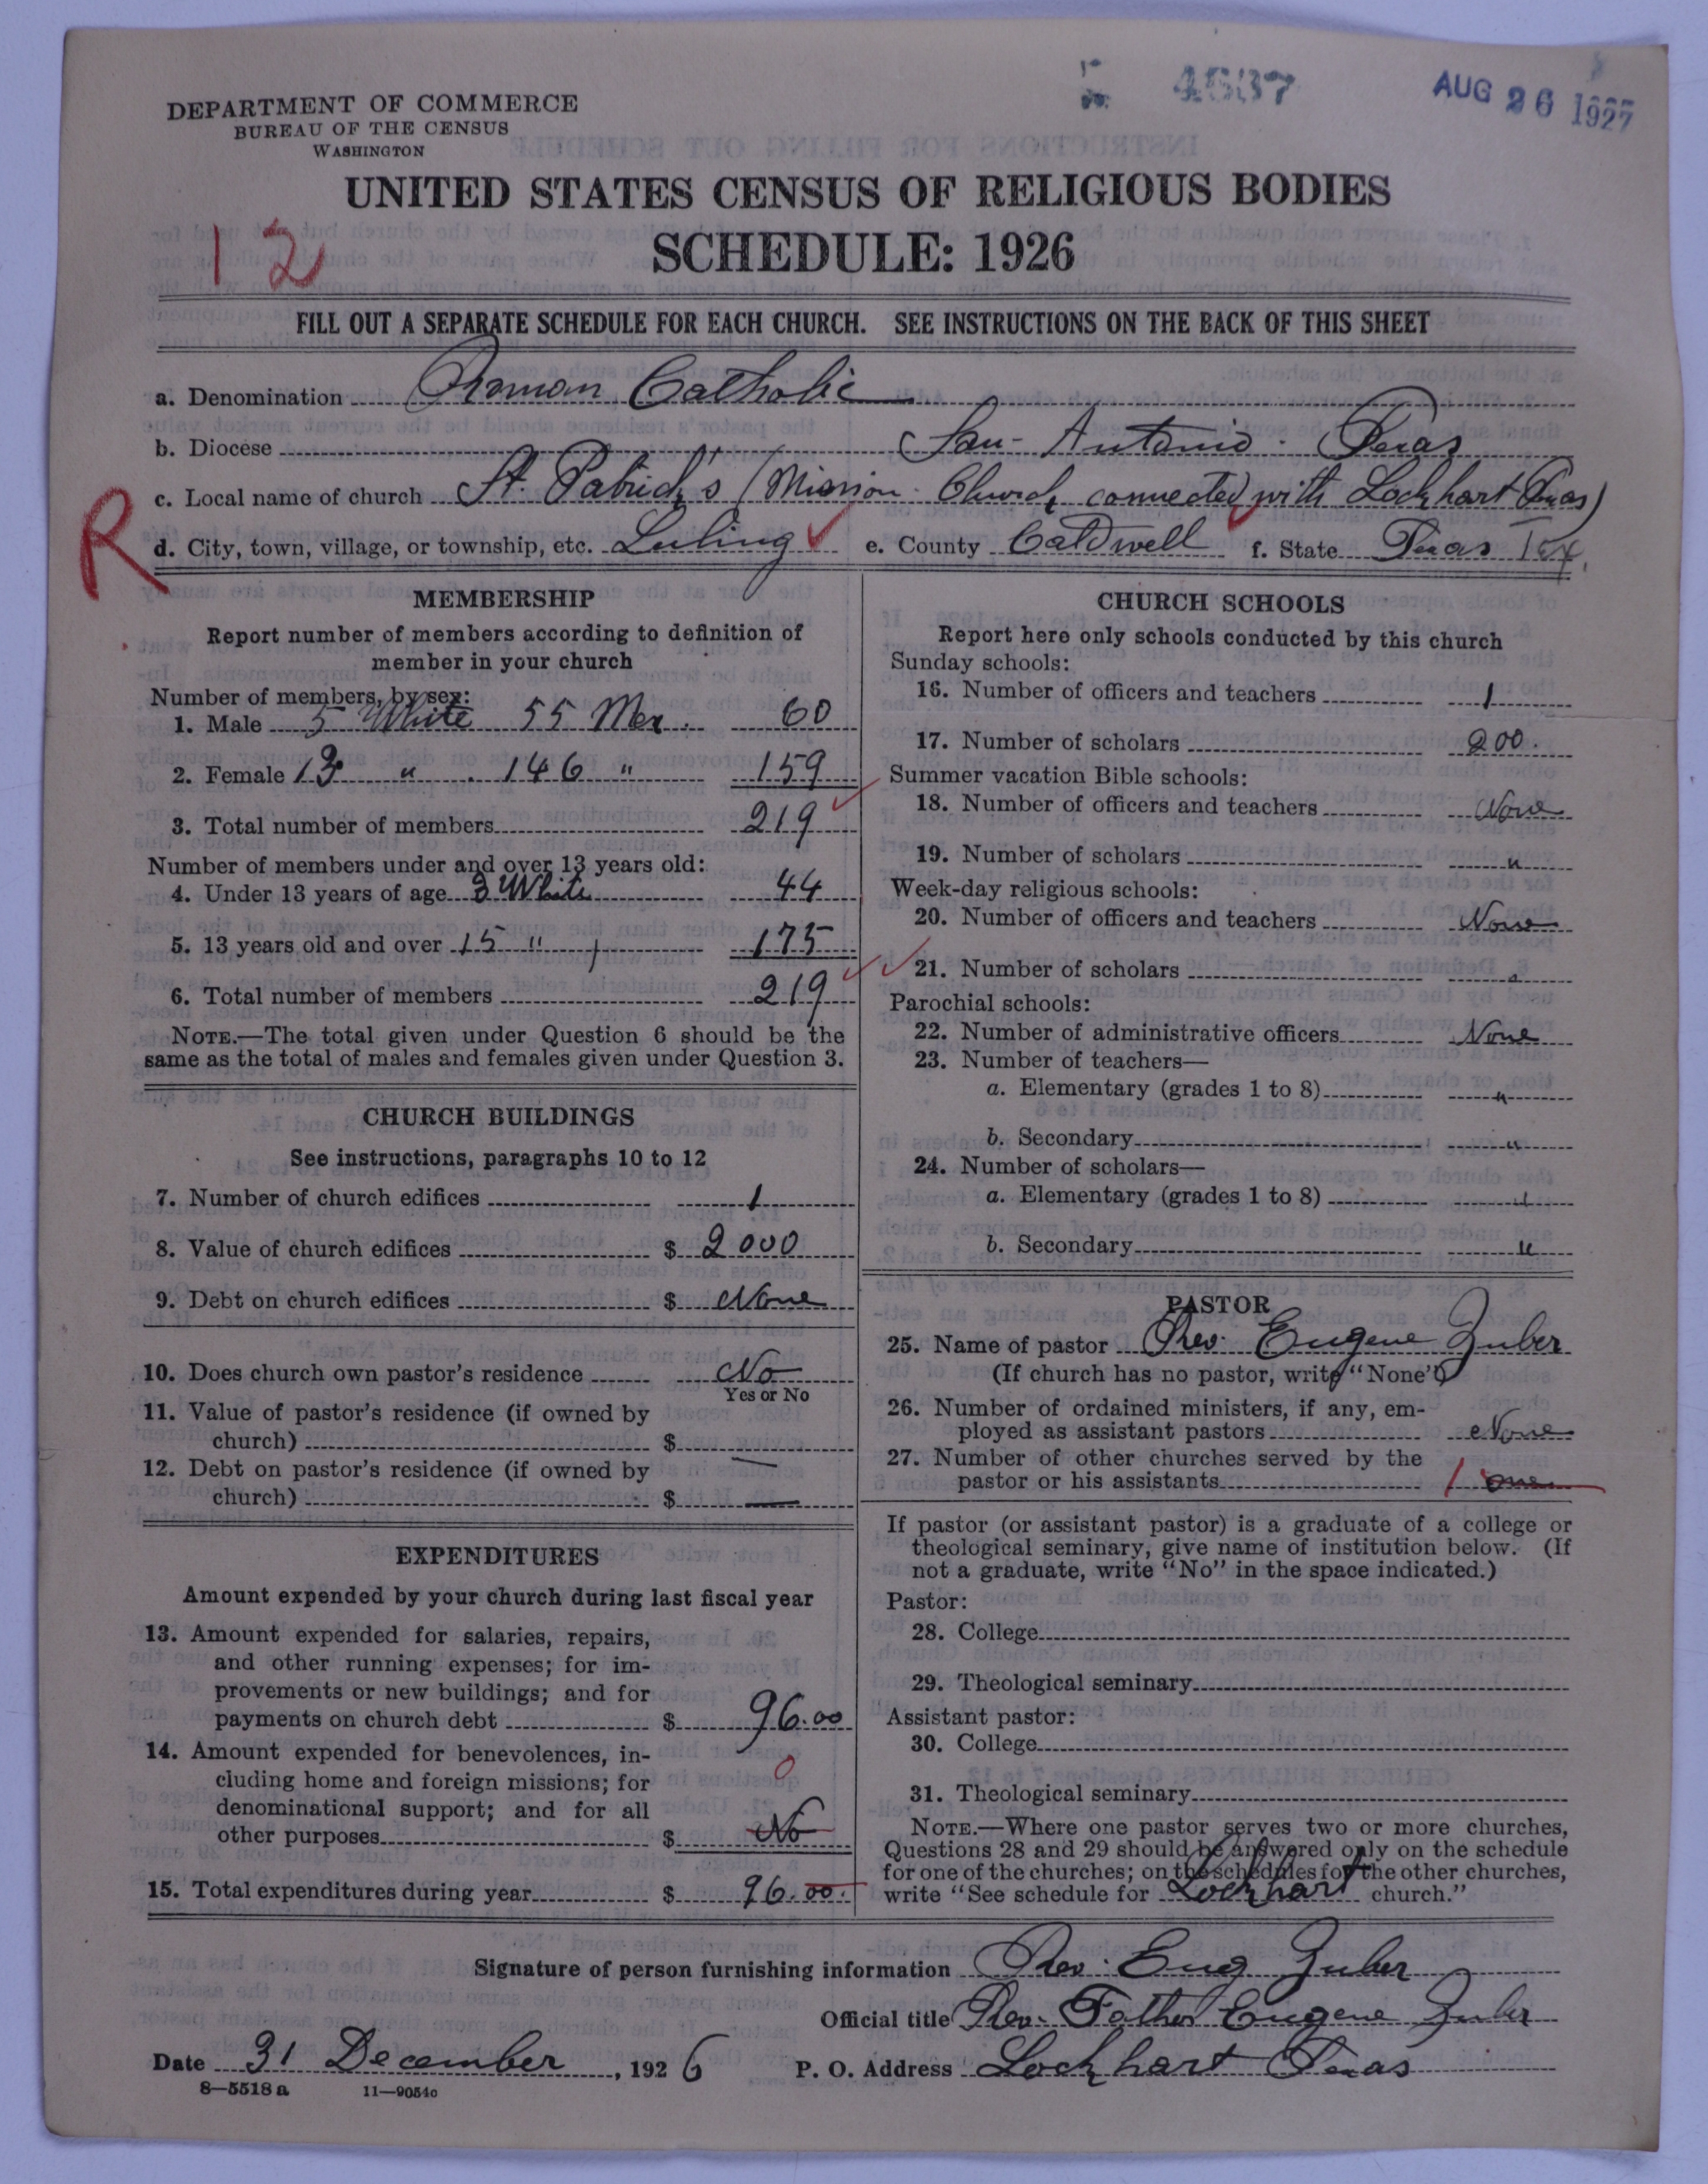 4637
AUG 26 1927
DEPARTMENT OF COMMERCE
BUREAU OF THE CENSUS
WASHINGTON
UNITED STATES CENSUS OF RELIGIOUS BODIES
SCHEDULE: 1926
12
FILL OUT A SEPARATE SCHEDULE FOR EACH CHURCH. SEE INSTRUCTIONS ON THE BACK OF THIS SHEET
a. Denomination Roman Catholic
b. Diocese San-Antonio. Texas
c. Local name of church St. Patrick's (Mission Church connected with Lockhart Texas)
R
d. City, town, village, or township, etc. Luling e. County Caldwell f. State Texas Tex.
MEMBERSHIP
Report number of members according to definition of
member in your church
Number of members, by sex:
1. Male 5 White 55 Mex. 60
2. Female 13 " 146 " 159
3. Total number of members 219
Number of members under and over 13 years old:
4. Under 13 years of age 3 White 44
5. 13 years old and over 15 " 175
6. Total number of members 219
NOTE.—The total given under Question 6 should be the
same as the total of males and females given under Question 3.
CHURCH BUILDINGS
See instructions, paragraphs 10 to 12
7. Number of church edifices 1
8. Value of church edifices $ 2000
9. Debt on church edifices $ None
10. Does church own pastor's residence No
Yes or No
11. Value of pastor's residence (if owned by
church) $ —
12. Debt on pastor's residence (if owned by
church) $ —
EXPENDITURES
Amount expended by your church during last fiscal year
13. Amount expended for salaries, repairs,
and other running expenses; for im-
provements or new buildings; and for
payments on church debt $ 96.00
14. Amount expended for benevolences, in-
cluding home and foreign missions; for
denominational support; and for all
other purposes $ No 0
15. Total expenditures during year $ 96.00.
CHURCH SCHOOLS
Report here only schools conducted by this church
Sunday schools:
16. Number of officers and teachers 1
17. Number of scholars 200.
Summer vacation Bible schools:
18. Number of officers and teachers None
19. Number of scholars "
Week-day religious schools:
20. Number of officers and teachers None
21. Number of scholars "
Parochial schools:
22. Number of administrative officers None
23. Number of teachers—
a. Elementary (grades 1 to 8) "
b. Secondary "
24. Number of scholars—
a. Elementary (grades 1 to 8) "
b. Secondary "
PASTOR
25. Name of pastor Rev. Eugene Zuber
(If church has no pastor, write "None")
26. Number of ordained ministers, if any, em-
ployed as assistant pastors None
27. Number of other churches served by the
pastor or his assistants 1 one
If pastor (or assistant pastor) is a graduate of a college or
theological seminary, give name of institution below. (If
not a graduate, write "No" in the space indicated.)
Pastor:
28. College
29. Theological seminary
Assistant pastor:
30. College
31. Theological seminary
NOTE.—Where one pastor serves two or more churches,
Questions 28 and 29 should be answered only on the schedule
for one of the churches; on the schedules for the other churches,
write "See schedule for Lockhart church."
Signature of person furnishing information Rev. Eug Zuber
Official title Rev. Father Eugene Zuber
Date 31 December, 1926 P. O. Address Lockhart Texas
8—5518a 11—9054c